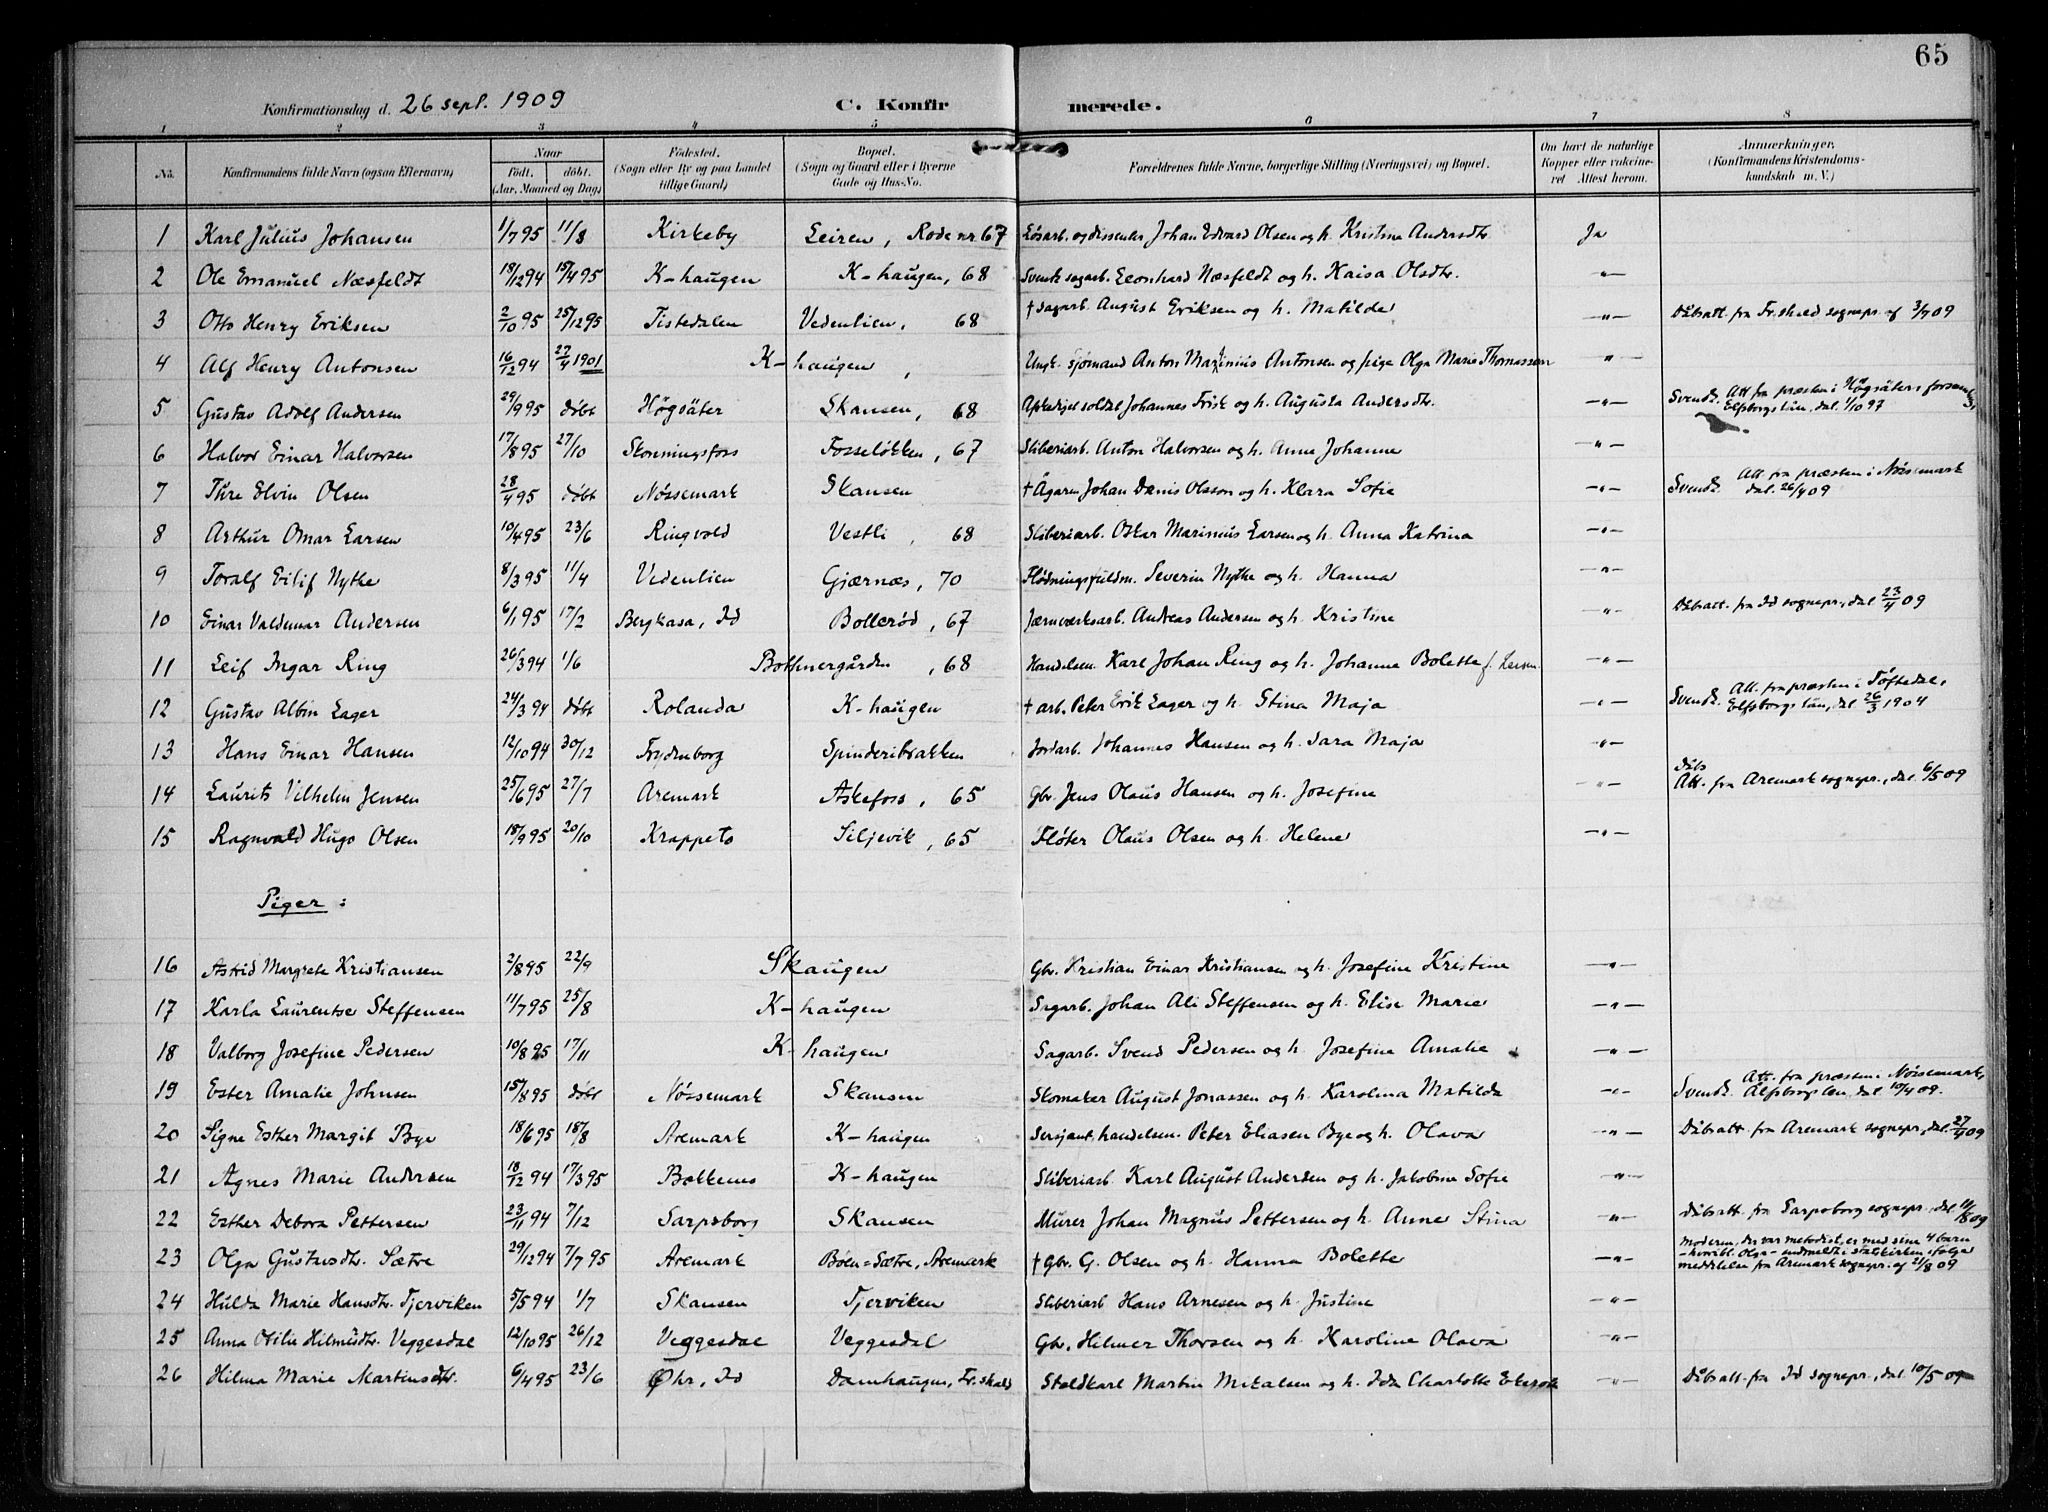 65
Konfirmationsdag d. 26 sept. 1909 C. Konfirmerede.
1 2 3 4 5 6 7 8
No. Konfirmandens fulde Navn (ogsaa Efternavn) Naar født. døbt. (Aar, Maaned og Dag) Fødested. (Sogn eller By og paa Landet tillige Gaard) Bopæl. (Sogn og Gaard eller i Byerne Gade og Hus-No. Forældrenes fulde Navne, borgerlige Stilling (Næringsvei) og Bopæl. Om havt de naturlige Kopper eller vakcineret Attest herom. Anmærkninger. (Konfirmandens Kristendomskundskab m. V.)
1 Karl Julius Johansen 1/7 95 11/8 Kirkeby Leiren, Rode nr. 67 Løsarb. og dissenter Johan Edvard Olsen og h. Kristine Andersdtr. Ja
2 Ole Emanuel Næsfeldt 18/12 94 15/4 95 K-haugen K-haugen, 68 Svensk sagarb. Leonhard Næsfeldt og h. Kaisa Olsdtr. -"-
3 Otto Henry Eriksen 2/10 95 25/12 95 Tistedalen Vedenlien, 68 † Sagarb. August Eriksen og h. Matilde -"- Dåbsatt. fra Fr.shald sognepr. af 3/7 09
4 Alf Henry Antonsen 16/12 94 27/4 1901 K-haugen, Ungk. sjømand Anton Marinius Antonsen og pige Olga Marie Thomassen -"-
5 Gustav Adolf Andersen 29/9 95 døbt Högsäter Skansen, 68 Afskedjet soldat Johannes Frisk og h. Augusta Andersdtr. -"- Svensk. Att. fra præsten i Högsäters forsamling, Elfsborgs län, dat. 1/10 97
6 Halvor Einar Halvorsen 17/8 95 27/10 Skonningsfoss Fosseløkken, 67 Sliberiarb. Anton Halvorsen og h. Anna Johanne -"-
7 Thre Elvin Olsen 28/4 95 døbt Nössemark Skansen † Ågaren Johan Denis Olsson og h. Klara Sofie -"- Svensk. Att. fra præsten i Nössemark dat. 26/4 09
8 Arthur Omar Larsen 10/4 95 23/6 Ringvold Vestli, 68 Sliberiarb. Oskar Marinius Larsen og h. Anna Katrina -"-
9 Toralf Eilif Nythe 8/3 95 11/4 Vedenlien Gjærnæs, 70 Flødningsfuldm. Severin Nythe og h. Hanna -"-
10 Einar Valdemar Andersen 6/1 95 17/2 Bergkasa, Id Bollerød, 67 Jærnværksarb. Andreas Andersen og h. Kristine -"- Dåbsatt. fra Id sognepr., dat. 23/4 09
11 Leif Ingar Ring 26/3 94 1/6 Bothnergården, 68 Handelsm. Karl Johan Ring og h. Johanne Bolette f. Larsen -"-
12 Gustav Albin Lager 24/3 94 døbt Rolanda K-haugen † arb. Peter Erik Lager og h. Stina Maja -"- Svensk. Att. fra præsten i Töftedal, Elfsborgs län, dat. 26/3 1904
13 Hans Einar Hansen 12/10 94 30/12 Frydenborg Spinderibakken Jordarb. Johannes Hansen og h. Sara Maja -"-
14 Laurits Vilhelm Jensen 25/6 95 27/7 Aremark Askefoss, 65 Gbr. Jens Olaus Hansen og h. Josefine -"- Dåbs Att. fra Aremark sognepr., dat. 6/5 09
15 Ragnvald Hugo Olsen 18/9 95 20/10 Krappeto Siljevik, 65 Fløter Olaus Olsen og h. Helene -"-
Piger:
16 Astrid Margrete Kristiansen 2/8 95 22/9 Skaugen Gbr. Kristian Einar Kristiansen og h. Josefine Kristine -"-
17 Karla Laurentse Steffensen 11/7 95 25/8 K-haugen Sagarb. Johan Ali Steffensen og h. Elise Marie -"-
18 Valborg Josefine Pedersen 10/8 95 17/11 K-haugen Sagarb. Svend Pedersen og h. Josefine Amalie -"-
19 Ester Amalie Johnsen 15/8 95 døbt Nössemark Skansen Skomaker August Jonassen og h. Karolina Matilda -"- Svensk. Att. fra præsten i Nössemark, Älfsborgs len, dat. 10/4 09.
20 Signe Esther Margit Bye 18/6 95 18/8 Aremark K-haugen Sersjant, handelsm. Peter Eliasen Bye og h. Olava -"- Dåbsatt. fra Aremark sognepr., dat. 27/4 09
21 Agnes Marie Andersen 18/12 94 17/3 95 Bakkenes K-haugen Sliberiarb. Karl August Andersen og h. Jakobine Sofie -"-
22 Esther Debora Pettersen 23/11 94 7/12 Sarpsborg Skansen Murer Johan Magnus Pettersen og h. Anne Stina -"- Dåbsatt. fra Sarpsborg sognepr., dat. 11/8 09
23 Olga Gustavsdtr. Sætre 29/12 94 7/7 95 Aremark Bøen=Sætre, Aremark † Gbr. G. Olsen og h. Hanna Bolette -"- Moderen, der var metodist, er med sine 4 barn - hvoribl. Olga - indmeldt i statskirken ifølge meddelelse fra Aremark sognepr. af 21/8 09
24 Hulda Marie Hansdtr. Tjerviken 5/5 94 1/7 Skansen Tjerviken Sliberiarb Hans Arnesen og h. Justine -"-
25 Anna Otilie Hilmersdtr. Veggesdal 12/10 95 26/12 Veggesdal Veggesdal Gbr. Hilmer Thorsen og h. Karoline Olava -"-
26 Hilma Marie Martinsdtr. 6/4 95 23/6 Øhr, Id Damhaugen, Fr.shald Staldkarl Martin Mikalsen og h. Ida Charlotte -"- Dåbsatt. fra Id sognepr., dat. 10/5 09